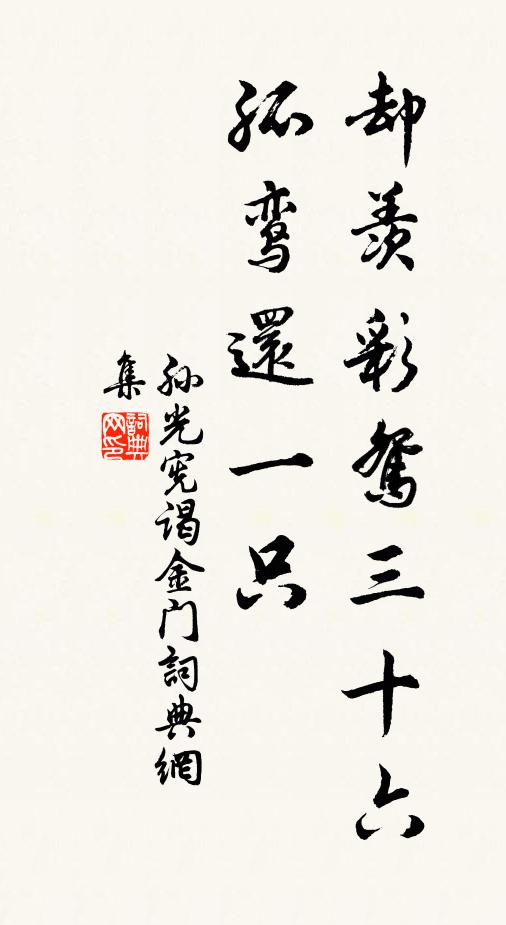 却羡彩鸳三十六
孤鸾還一只
孙光宪谒金门詞典網
集
詞典网印